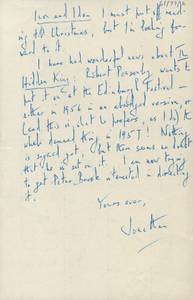 Iron and Idon I must put off read-
ing till Christmas, but I'm looking for-
ward to it.
I have had wonderful news about The
Hidden King: Robert Ponsonby wants to
put it on at the Edinburgh Festival —
either in 1956 in an abridged version, or
(and this is what he prefers, as I do) the
whole damned thing in 1957! Nothing
is signed yet, but there seems no doubt
that he is set on it. I am now trying
to get Peter Brook interested in directing
it.
Yours ever,
Jonathan